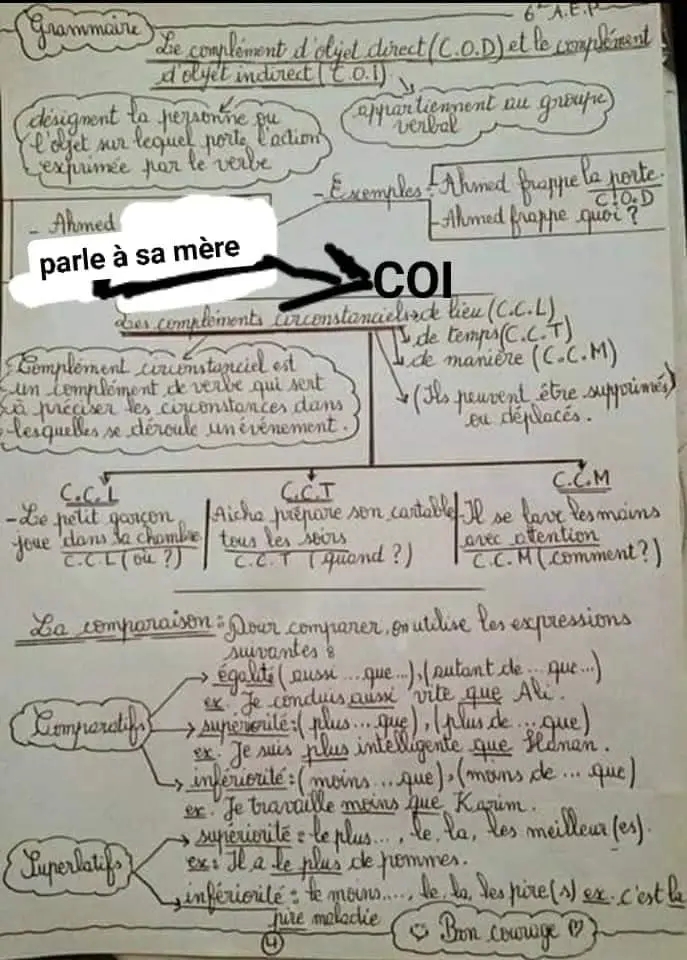 Grammaire
6e A.E.P
Le complément d'objet direct (C.O.D) et le complément
d'objet indirect (C.O.I)
désignent la personne ou
l'objet sur lequel porte l'action
exprimée par le verbe
appartiennent au groupe
verbal
- Exemples : - Ahmed frappe la porte.
C.O.D
- Ahmed frappe quoi ?
- Ahmed
parle à sa mère
COI
Les compléments circonstanciels → de lieu (C.C.L)
de temps (C.C.T)
de manière (C.C.M)
(Ils peuvent être supprimés)
ou déplacés.
Complément circonstanciel est
un complément de verbe qui sert
à préciser les circonstances dans
lesquelles se déroule un événement.
C.C.L
- Le petit garçon
joue dans sa chambre
C.C.L (où ?)
C.C.T
Aicha prépare son cartable
tous les soirs
C.C.T (quand ?)
C.C.M
- Il se lave les mains
avec attention
C.C.M (comment ?)
La comparaison : Pour comparer, on utilise les expressions
suivantes :
Comparatifs
→ égalité (aussi ... que...), (autant de ... que...)
ex. Je conduis aussi vite que Ali.
→ supériorité : (plus ... que), (plus de ... que)
ex. Je suis plus intelligente que Hanan.
→ infériorité : (moins ... que), (moins de ... que)
ex. Je travaille moins que Karim.
Superlatifs
→ supériorité : le plus..., le, la, les meilleur(es).
ex : Il a le plus de pommes.
→ infériorité : le moins...., le, la, les pire(s) ex. c'est la
pire maladie
4
Bon courage